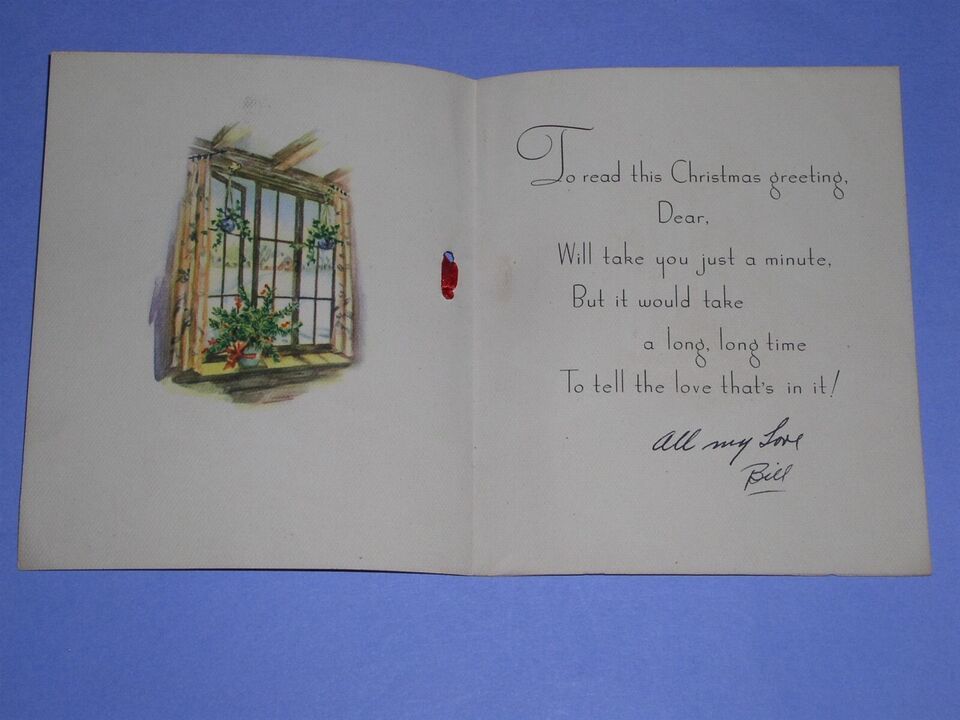 To read this Christmas greeting,
Dear,
Will take you just a minute,
But it would take
a long, long time
To tell the love that's in it!
All my Love
Bill